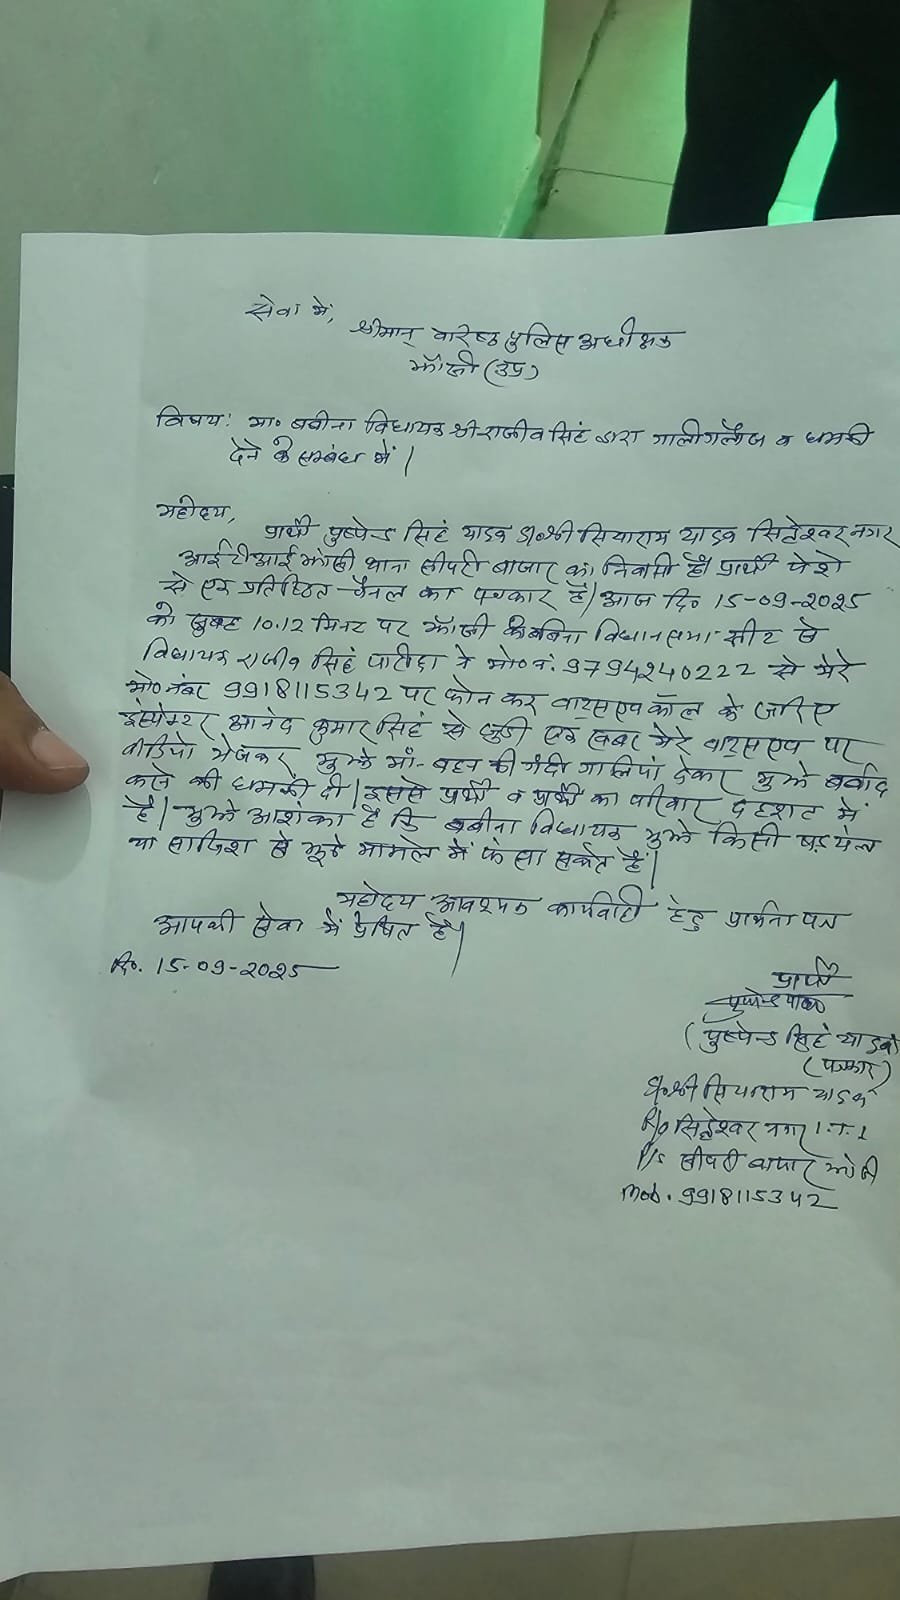 सेवा में,
श्रीमान् वरिष्ठ पुलिस अधीक्षक
झाँसी (उप्र)
विषय: मा० बबीना विधायक श्री राजीव सिंह द्वारा गालीगलौज व धमकी
देने के सम्बंध में।
महोदय,
प्रार्थी पुष्पेन्द्र सिंह यादव S/o श्री सियाराम यादव सिद्धेश्वर नगर
आईटीआई झाँसी थाना सीपरी बाजार का निवासी है। प्रार्थी पेशे
से एक प्रतिष्ठित चैनल का पत्रकार है। आज दि० 15-09-2025
को सुबह 10.12 मिनट पर झाँसी की बबिना विधानसभा सीट से
विधायक राजीव सिंह पारीछा ने मो०नं. 9794240222 से मेरे
मो० नंबर 9918115342 पर फोन कर वाट्सएप कॉल के जरिए
इंस्पेक्टर आनंद कुमार सिंह से जुड़ी एक खबर मेरे वाट्सएप पर
वीडियो भेजकर मुझे माँ-बहन की गंदी गालियां देकर मुझे बर्बाद
करने की धमकी दी। इससे प्रार्थी व प्रार्थी का परिवार दहशत में
है। मुझे आशंका है कि बबीना विधायक मुझे किसी षड़यंत्र
या साजिश से झूठे मामले में फंसा सकते हैं।
महोदय आवश्यक कार्यवाही हेतु प्रार्थना पत्र
आपकी सेवा में प्रेषित है।
दि०. 15-09-2025
प्रार्थी
पुष्पेन्द्र यादव
(पुष्पेन्द्र सिंह यादव)
(पत्रकार)
S/o श्री सियाराम यादव
R/o सिद्धेश्वर नगर I.T.I
P/s सीपरी बाजार झाँसी
Mob. 9918115342